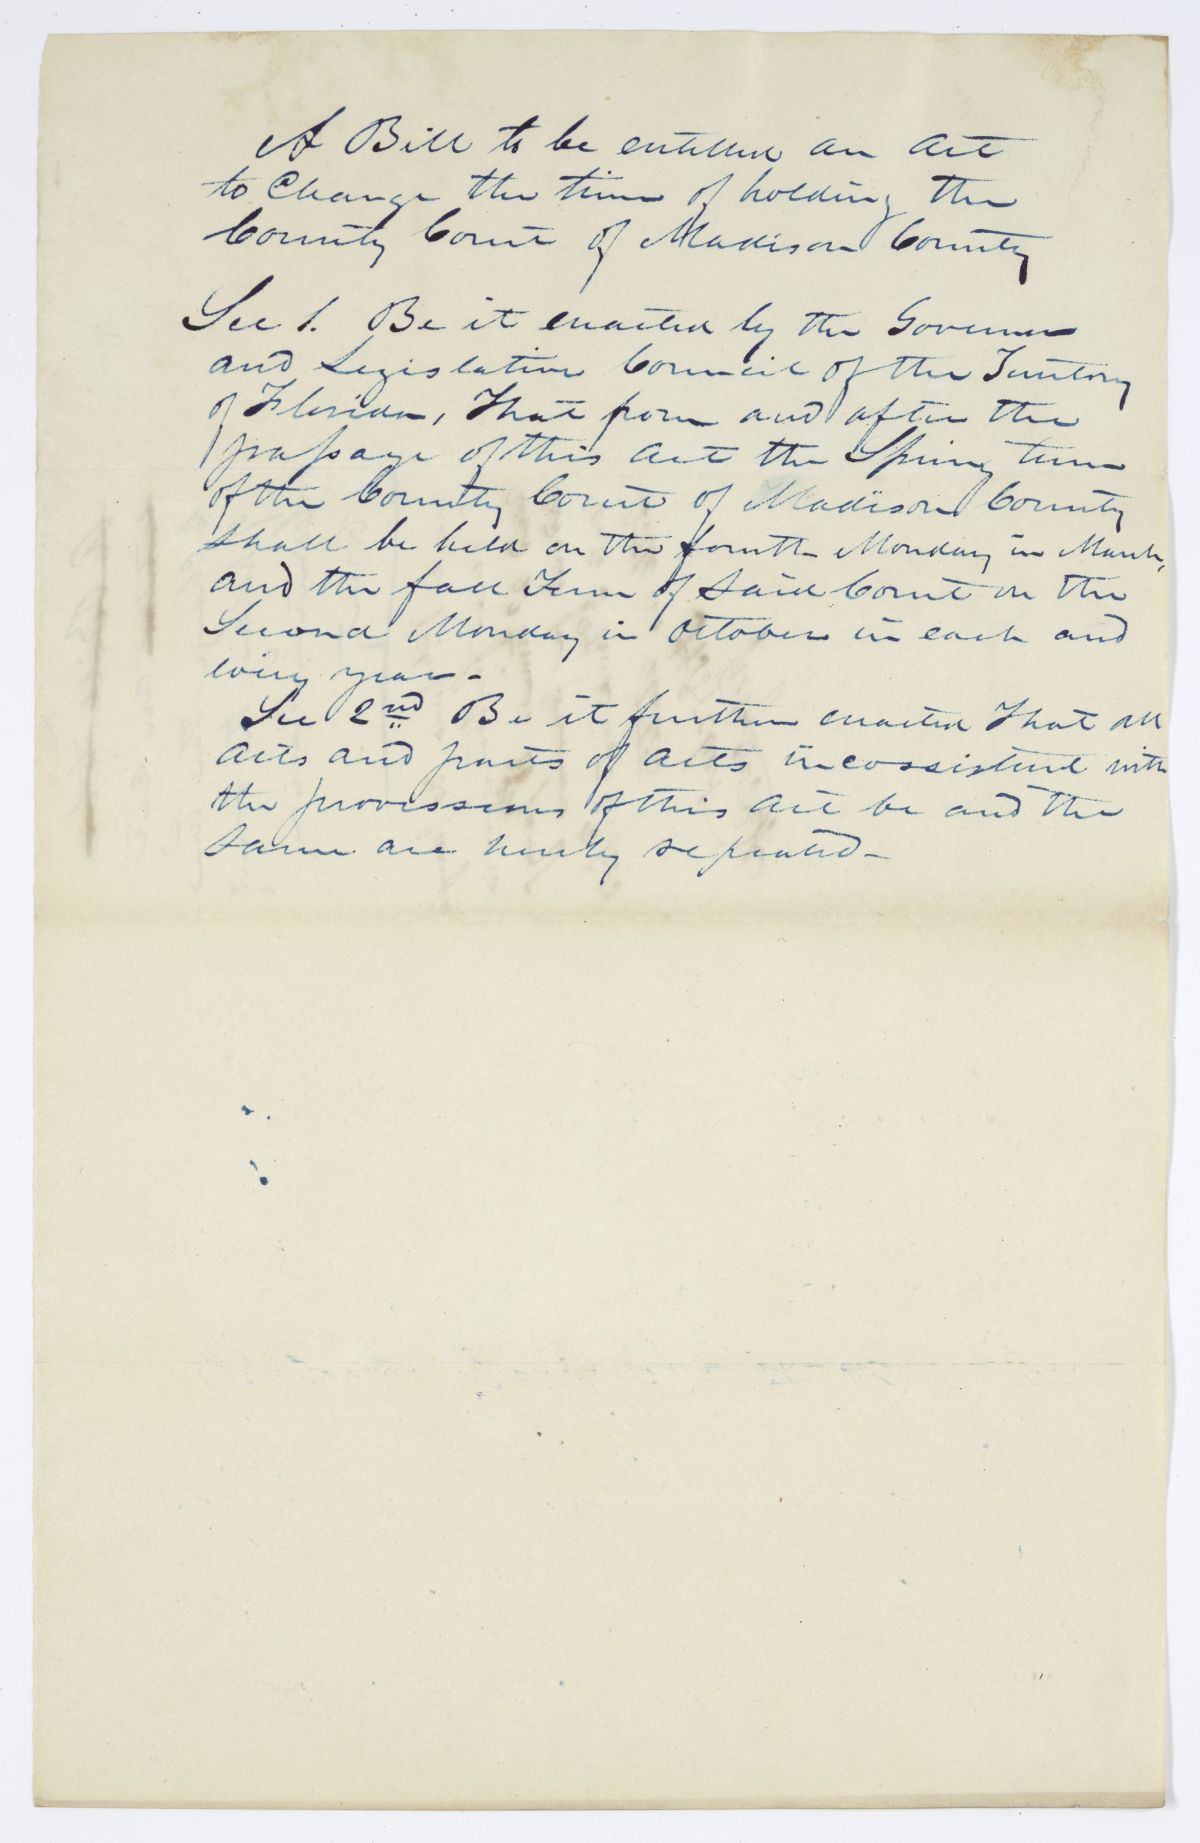 A Bill to be entitled an act
to Change the time of holding the
County Court of Madison County
Sec 1. Be it enacted by the Governor
and Legislative Council of the Territory
of Florida, That from and after the
passage of this act the Spring term
of the County Court of Madison County
shall be held on the fourth Monday in March,
and the fall Term of said Court on the
Second Monday in October in each and
every year-
Sec 2nd Be it further enacted That all
acts and parts of acts incossistend with
the provissions of this act be and the
same are hereby repealed-